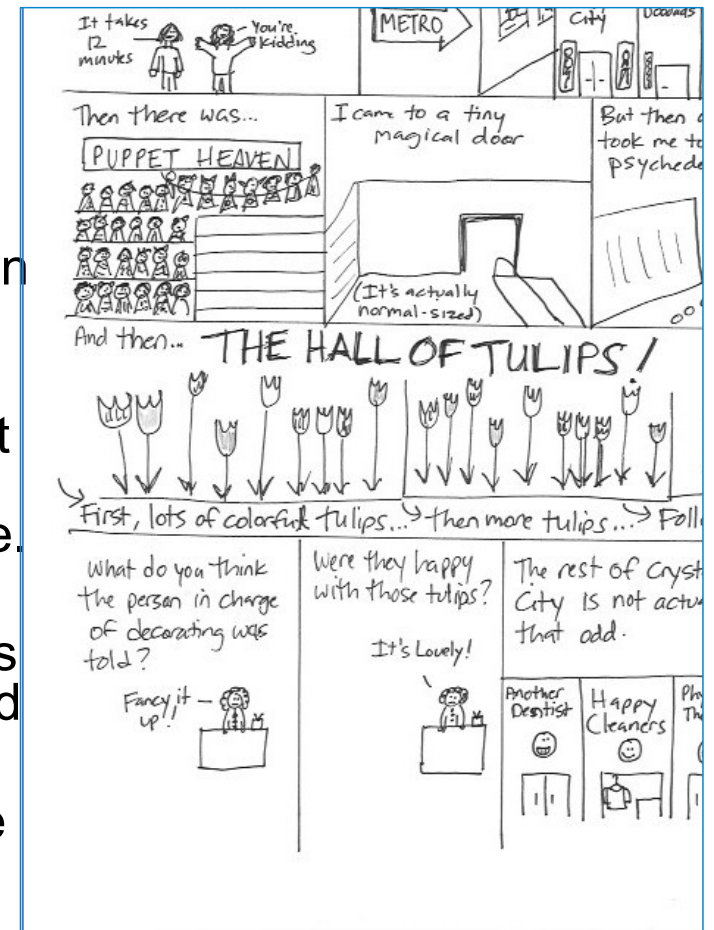 It takes
12
minutes
You're
kidding
METRO
City
Then there was...
PUPPET HEAVEN
I came to a tiny
magical door
(It's actually
normal-sized)
But then
took me to
And then...
THE HALL OF TULIPS!
First, lots of colorful tulips...
then more tulips...
What do you think
the person in charge
of decorating was
told?
Fancy it
up!!
Were they happy
with those tulips?
It's Lovely!
The rest of
City is not
that odd.
Another
Dentist
Happy
Cleaners